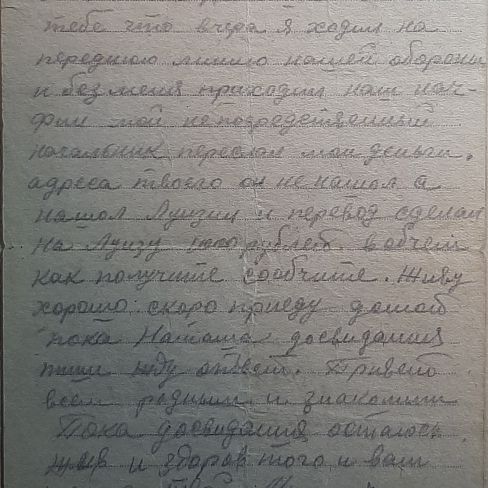 тебе что вчера я ходил на
переднюю линию нашей обороны
и без меня приходил наш нач-
фин мой непосредственный
начальник переслал мои деньги.
адреса твоего он не нашол а
нашол Луизин и перевод сделал
на Луизу рублей. вобчем
как получите сообчите. Живу
хорошо скоро приеду домой
пока Наташа досвидания
пиши жду ответ. Привет
всем родным и знакомым
Пока досвидания осталось
жив и здоров того и вам